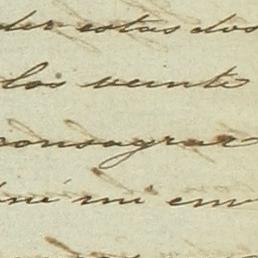 der estas dos
los veinte
consagrar
mi em